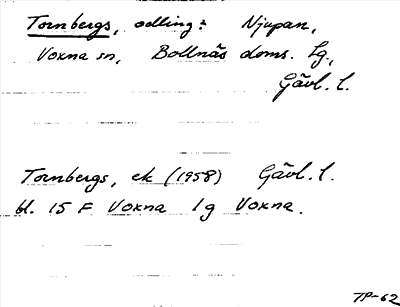 Tornbergs, odling: Njupan,
Voxna sn, Bollnäs doms. Lg,
Gävl. l.
Tornbergs, ek (1958) Gävl. l.
bl. 15 F Voxna 1g Voxna.
TP-62